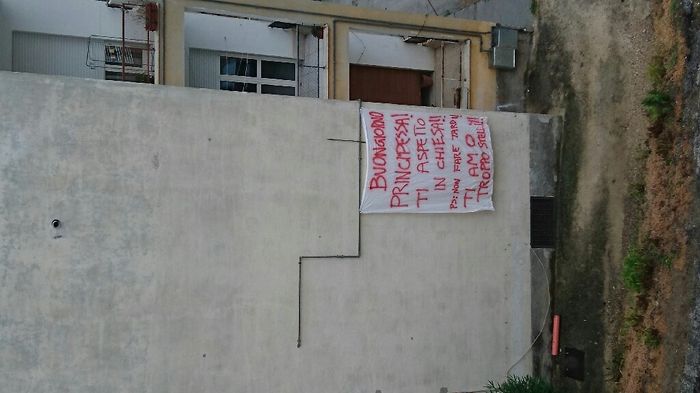 BUONGIORNO
PRINCIPESSA!
TI ASPETTO
IN CHIESA!!
PS: NON FARE TARDI!
TI AMO
TROPPO